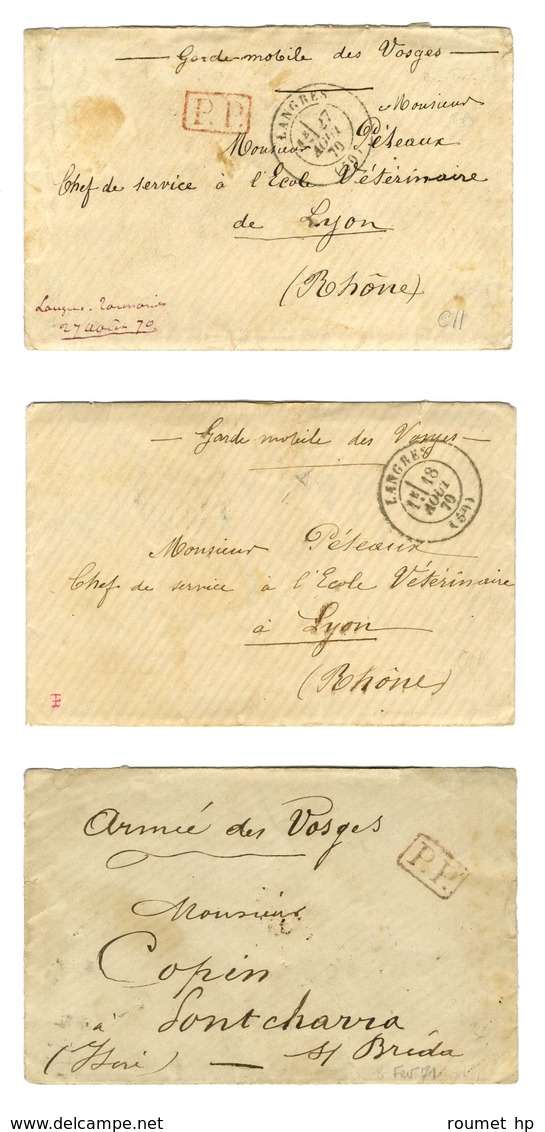 Garde-mobile des Vosges
P.P.
LANGRES
1E/ 27
AOUT
70
Monsieur
Monsieur Péteaux
Chef de service à l'Ecole Vétérinaire
de Lyon
(Rhône)
27 août 70
C11
Garde mobile des Vosges
LANGRES
1E/ 18
AOUT
70
(50)
Monsieur Péteaux
Chef de service à l'Ecole Vétérinaire
à Lyon
(Rhône)
Armée des Vosges
P.P.
Monsieur
Copin
à Pontcharra
(Isère) — s/ Bréda
8 Fev 71
roumet hp